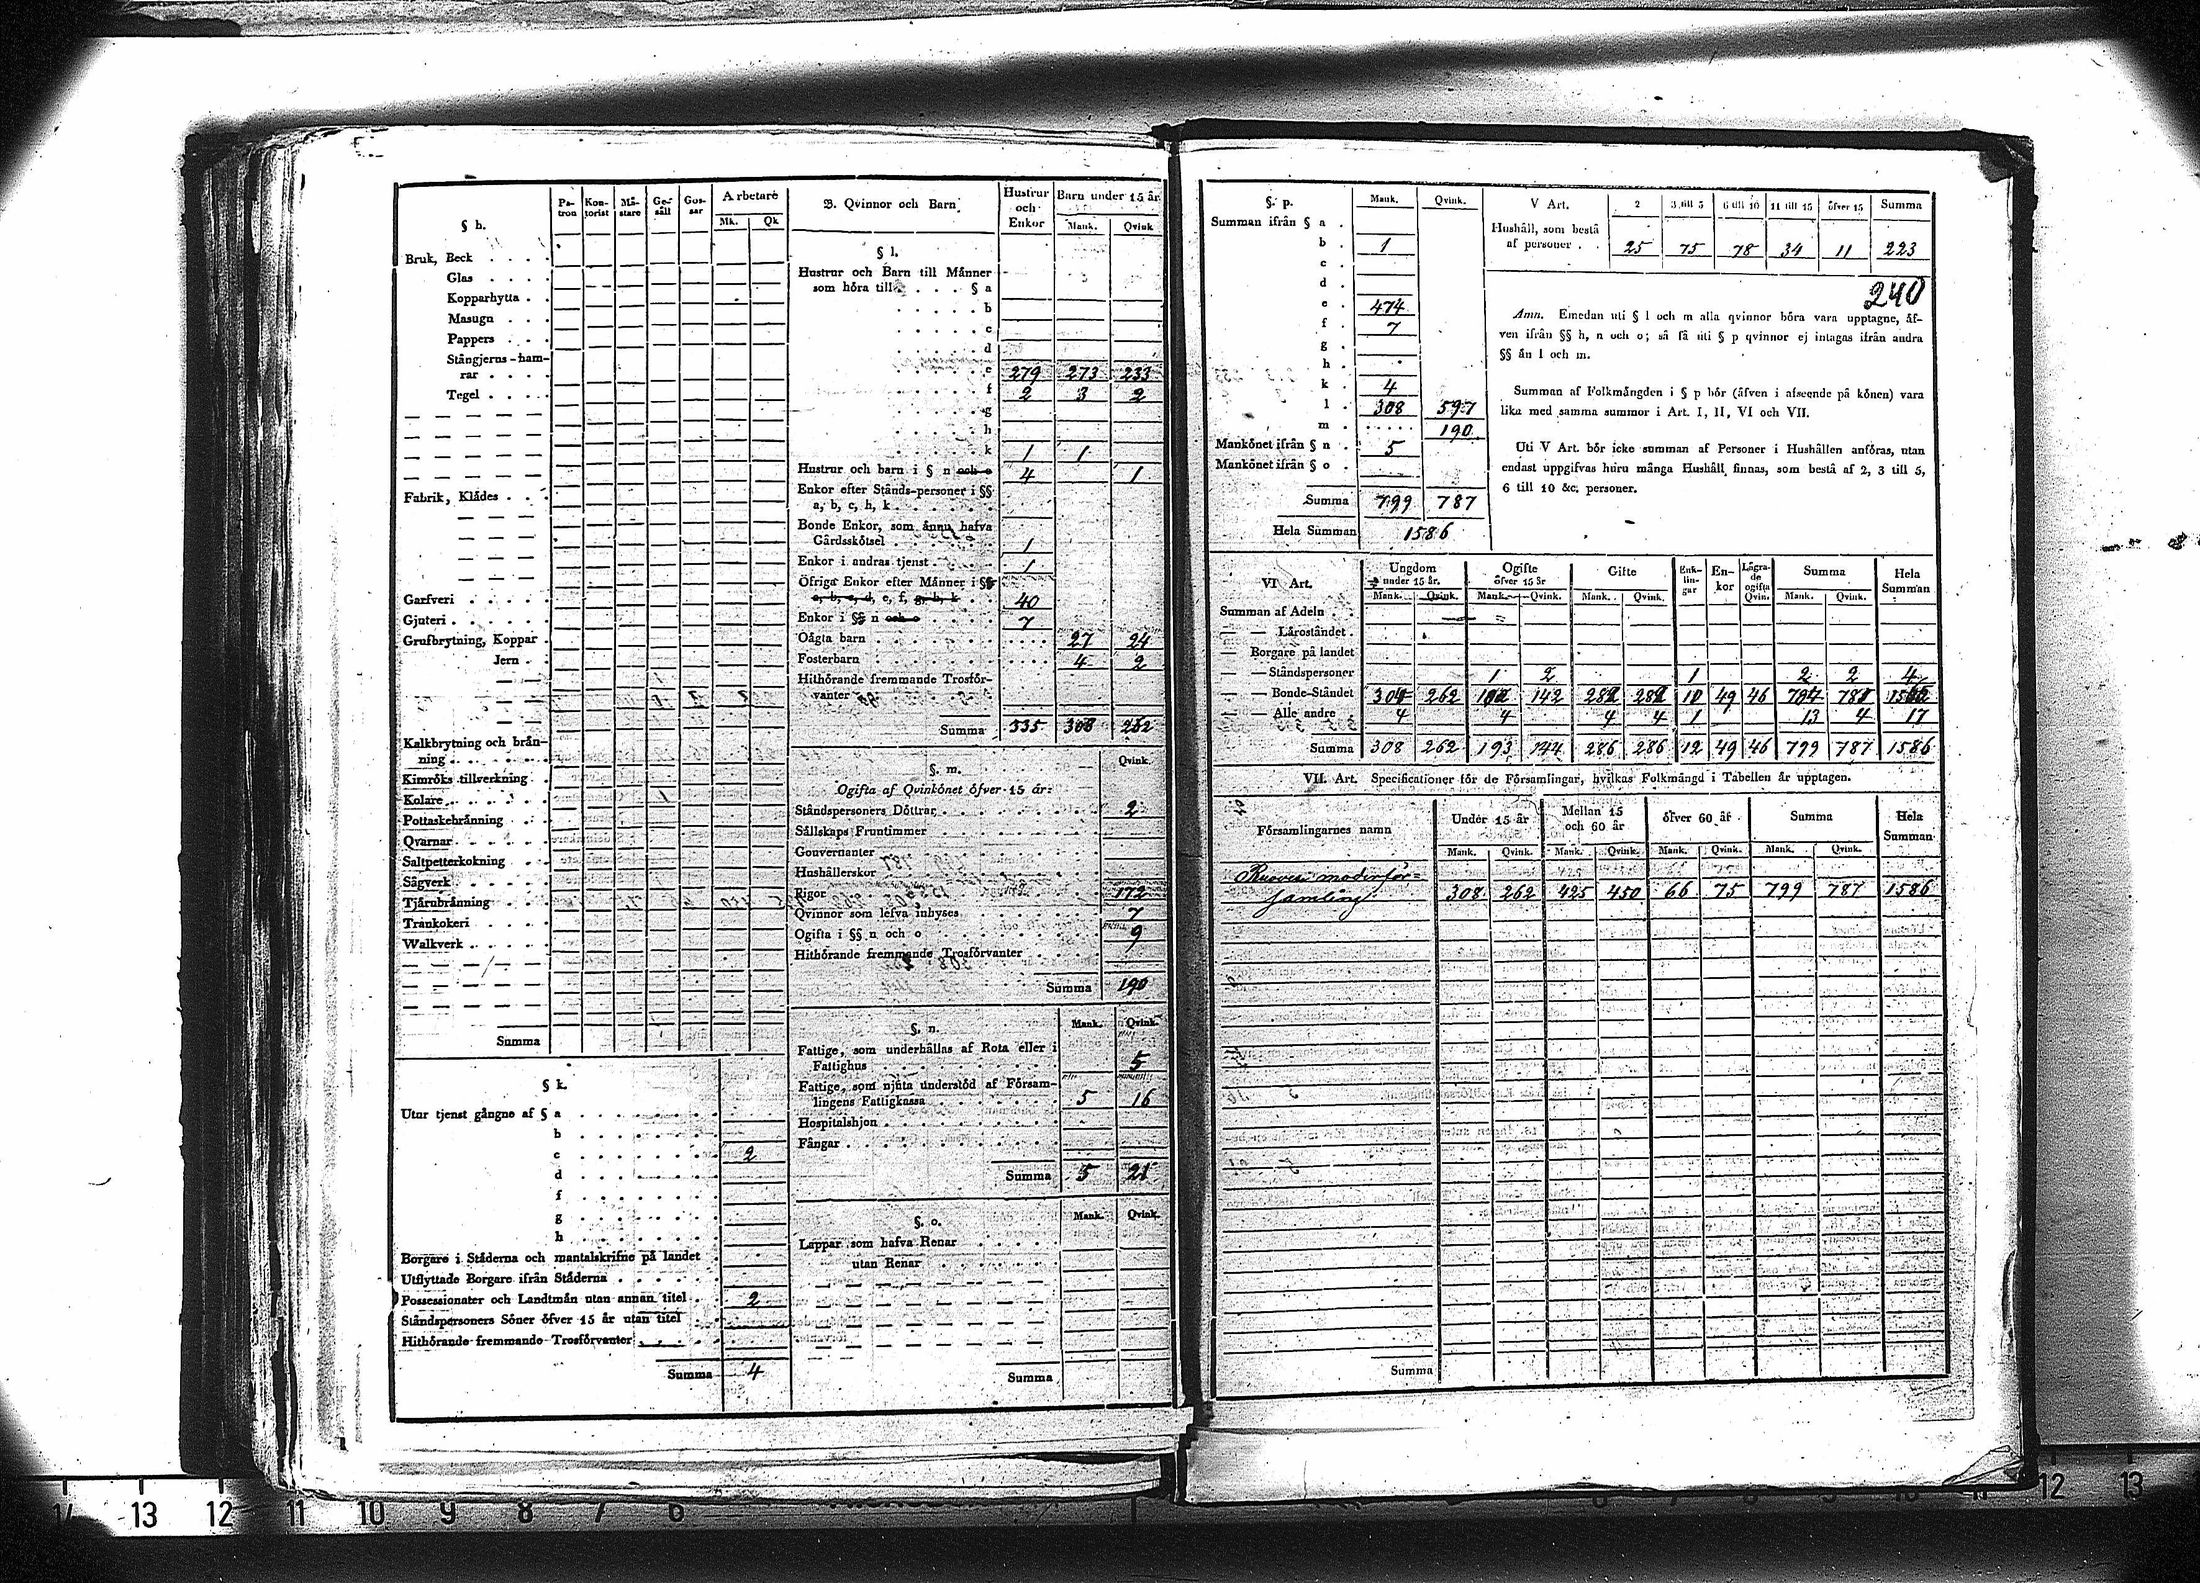 § h.
Pa-tron Kon-torist Må-stare Ge-säll Gos-sar Arbetare
Mk. Qk
Bruk, Beck . . . .
Glas . . . .
Kopparhytta . .
Masugn . . .
Pappers . . .
Stångjerns-ham-
rar . . . .
Tegel . . . .
Fabrik, Klådes . . .
Garfveri . . . . .
Gjuteri . . . . . .
Grufbrytning, Koppar .
Jern . .
Kalkbrytning och brån-
ning . . . . . .
Kimröks tillverkning .
Kolare . . . . . .
Pottaskebrånning . .
Qvarnar . . . . .
Saltpetterkokning . .
Sågverk . . . . .
Tjårubrånning . . .
Trankokeri . . . .
Walkverk . . . . .
Summa
§ k.
Utur tjenst gångne af § a . . . . . . .
b . . . . . . .
c . . . . . . . 2
d . . . . . . .
f . . . . . . .
g . . . . . . .
h . . . . . . .
Borgare i Ståderna och mantalskrifne på landet .
Utflyttade Borgare ifrån Ståderna . . . . . .
Possessionater och Landtmån utan annan titel . . 2
Ståndspersoners Söner öfver 15 år utan titel . .
Hithörande fremmande Trosförvanter . . . . .
Summa 4
B. Qvinnor och Barn
Hustrur och Enkor Barn under 15 år
Mank. Qvink
§ l.
Hustrur och Barn till Månner
som höra till . . . . § a
. . . . . b
. . . . . c
. . . . . d
. . . . . e 279 273 233
. . . . . f 2 3 2
. . . . . g
. . . . . h
. . . . . k 1 1
Hustrur och barn i § n och o 4 1
Enkor efter Stånds-personer i §§
a, b, c, h, k . . . . . .
Bonde Enkor, som ånnu hafva
Gårdsskötsel . . . . . . 1
Enkor i andras tjenst . . . . 1
Öfriga Enkor efter Månner i §§
a, b, c, d, e, f, g, h, k . . 40
Enkor i §§ n och o . . . . . 7
Oågta barn . . . . . . . . 27 24
Fosterbarn . . . . . . . . 4 2
Hithörande fremmande Trosför-
vanter . . . . . . . .
Summa 335 308 262
§. m. Qvink.
Ogifta af Qvinkönet öfver 15 år:
Ståndspersoners Döttrar . . . . . . . . 2
Sållskaps Fruntimmer . . . . . . . .
Gouvernanter . . . . . . . .
Hushållerskor . . . . . . . .
Pigor . . . . . . . . 172
Qvinnor som lefva inhyses . . . . . . 7
Ogifta i §§ n och o . . . . . . . . 9
Hithörande fremmande Trosförvanter . . . .
Summa 190
§. n. Mank. Qvink.
Fattige, som underhållas af Rota eller i
Fattighus . . . . . . . . . 5
Fattige, som njuta understöd af Försam-
lingens Fattigkassa . . . . . . . 5 16
Hospitalshjon . . . . . . . . .
Fångar . . . . . . . . . . .
Summa 5 21
§. o. Mank. Qvink.
Lappar som hafva Renar . . . .
utan Renar . . . . .
Summa
§. p. Mank. Qvink.
Summan ifrån § a .
b . 1
c .
d .
e . 474
f . 7
g .
h .
k . 4
l . 308 597
m . . . . . . 190
Mankönet ifrån § n . 5
Mankönet ifrån § o .
Summa 799 787
Hela Summan 1586
V Art. 2 3 till 5 6 till 10 11 till 15 öfver 15 Summa
Hushåll, som bestå
af personer . . 25 75 78 34 11 223
240
Anm. Emedan uti § l och m alla qvinnor böra vara upptagne, åf-
ven ifrån §§ h, n och o; så få uti § p qvinnor ej intagas ifrån andra
§§ ån l och m.
Summan af Folkmångden i § p bör (åfven i afseende på könen) vara
lika med samma summor i Art. I, II, VI och VII.
Uti V Art. bör icke summan af Personer i Hushållen anföras, utan
endast uppgifvas huru många Hushåll finnas, som bestå af 2, 3 till 5,
6 till 10 &c. personer.
VI Art. Ungdom under 15 år. Ogifte öfver 15 år Gifte Enk-lin-gar En-kor Lägra-de ogifta Qvin. Summa Hela Summan
Mank. Qvink. Mank. Qvink. Mank. Qvink. Mank. Qvink.
Summan af Adeln .
— — Låroståndet .
— — Borgare på landet
— — Ståndspersoner 1 2 1 2 2 4
— — Bonde-Ståndet 304 262 142 282 282 10 49 46
— — Alle andre 4 4 4 4 1 13 4 17
Summa 308 262 193 144 286 286 12 49 46 799 787 1586
VII. Art. Specificationer för de Församlingar, hvilkas Folkmängd i Tabellen år upptagen.
Församlingarnes namn Under 15 år Mellan 15 och 60 år öfver 60 år Summa Hela Summan
Mank. Qvink. Mank. Qvink. Mank. Qvink. Mank. Qvink.
Ruovesi moderför=
samling 308 262 425 450 66 75 799 787 1586
Summa
14 13 12 11 10 9 8 7 6
12 13